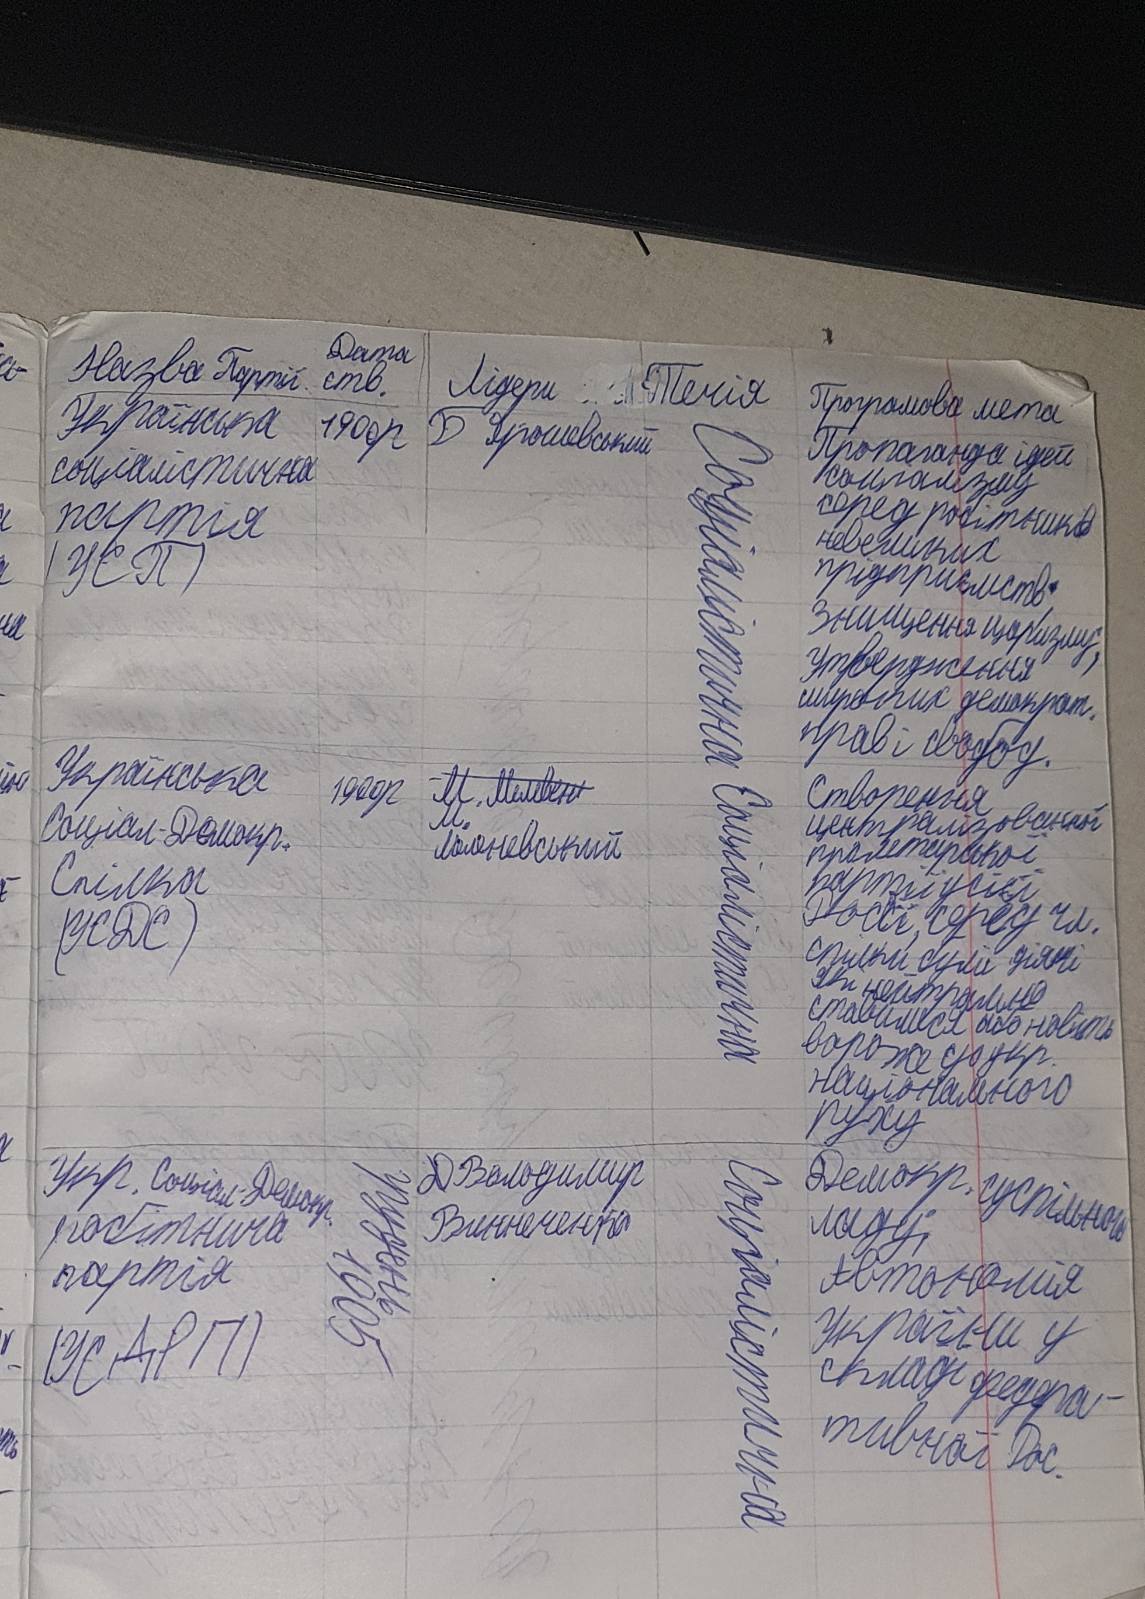 Назва Партії
Дата
ств.
Лідери
Течія
Програмова мета
Українська
соціалістична
партія
(УСП)
1900р
Д Ярошевський
Соціалістична
Пропаганда ідей
соціалізму
серед робітників
невеликих
підприємств.
Знищення царизму,
утвердження
широких демократ.
прав і свобод.
Українська
Соціал-Демокр.
Спілка
(УСДС)
М.
Соціалістична
Створення
централізованної
пролетарської
партії усієї
Росії, серед чл.
спілки були діячі
які нейтрально
ставилися або навіть
вороже до укр.
національного
руху
Укр. Соціал-Демокр.
робітнича
партія
(УСДРП)
грудень
1905
Володимир
Винниченко
Соціалістична
Демокр. суспільного
ладу;
Автономія
України у
складі федера-
тивної Рос.